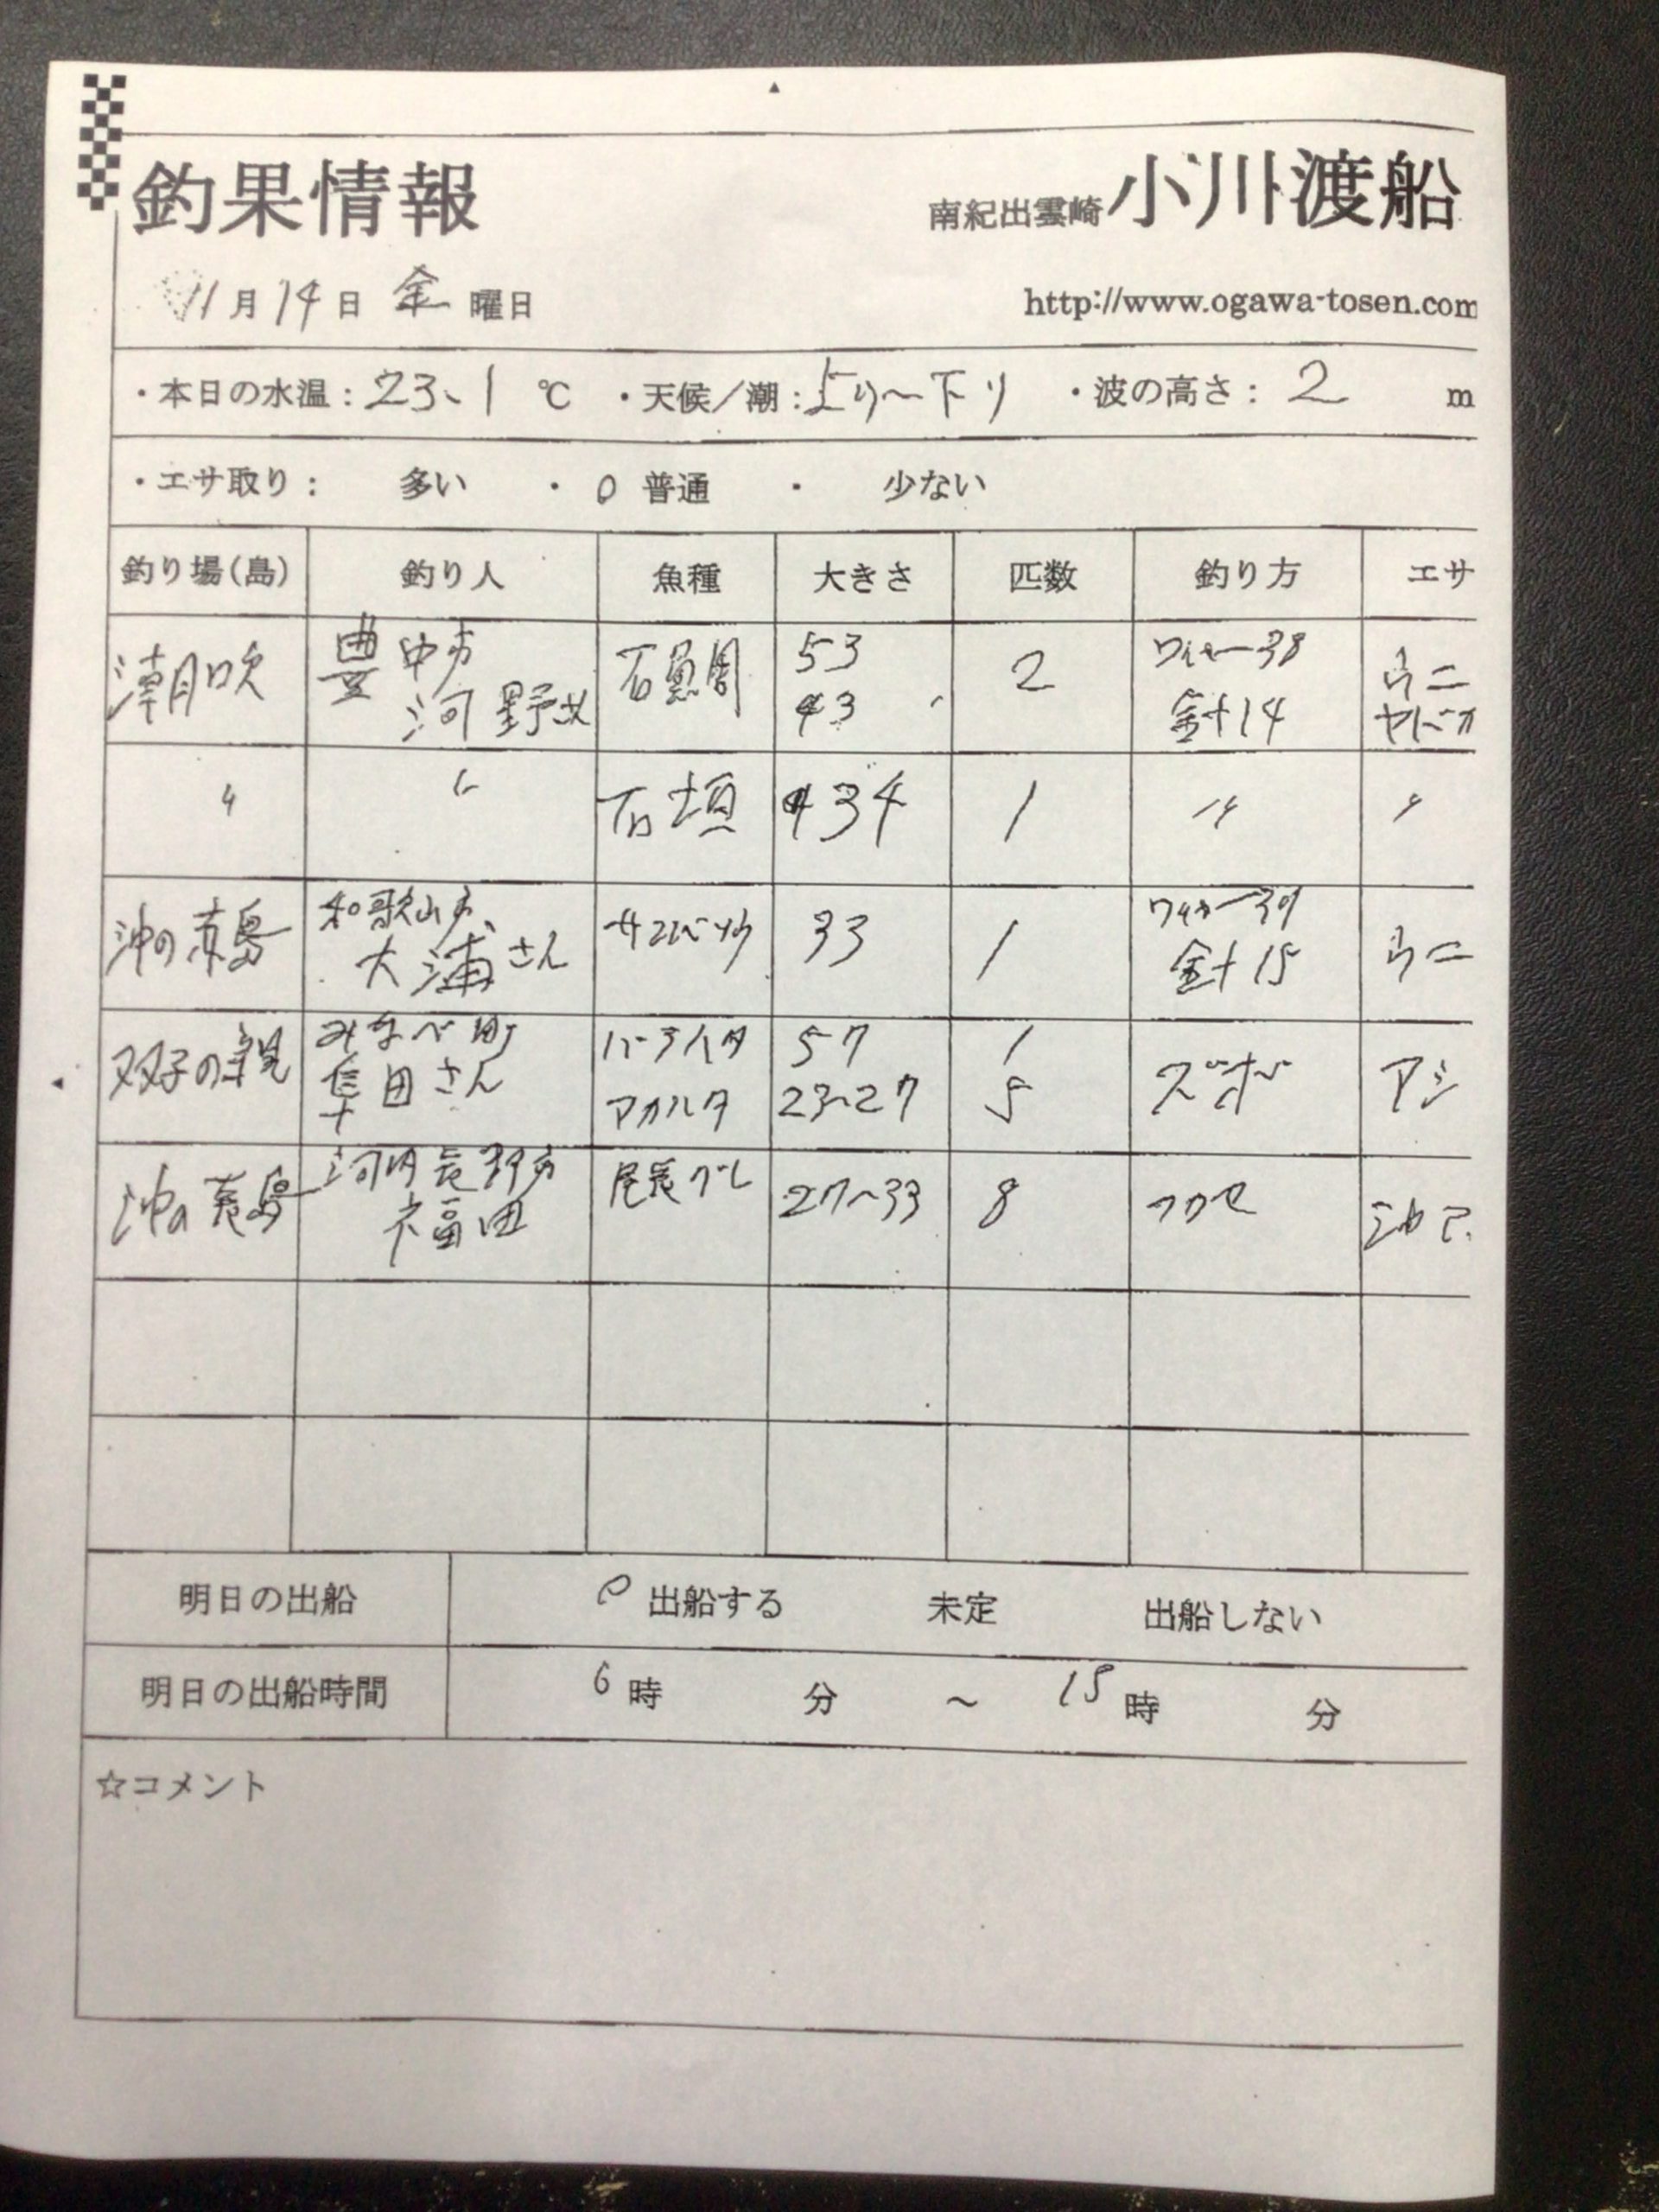 釣果情報
南紀出雲崎 小川渡船
11月14日 金 曜日
http://www.ogawa-tosen.com
・本日の水温：23、1 ℃ ・天候／潮：上り〜下り ・波の高さ： 2 m
・エサ取り： 多い ・ 0 普通 ・ 少ない
釣り場(島) 釣り人 魚種 大きさ 匹数 釣り方 エサ
潮吹 豊中市 石鯛 53 2 ワイヤー38 ウニ
河野 43 針14 ヤドカ
〃 〃 石垣 434 1 〃 〃
沖の 島 和歌山市 サンバソウ 33 1 ワイヤー39 ウニ
大浦さん 針15
双子の親 みなべ町 57 1 ズボ アジ
田さん アカハタ 23〜27 5
沖の 島 河内長野市 尾長グレ 27〜33 8 フカセ
福田
明日の出船 0 出船する 未定 出船しない
明日の出船時間 6 時 分 ～ 15 時 分
☆コメント